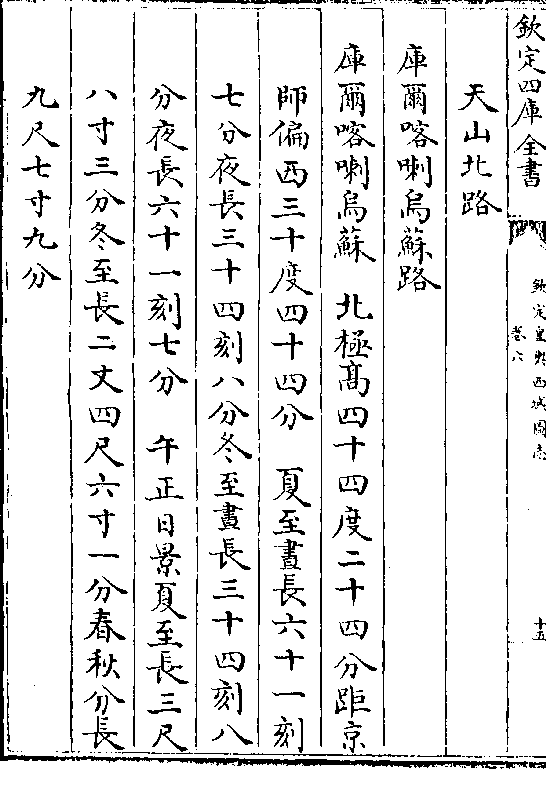 欽定四庫全書
欽定皇輿西域圖志
卷六
十五
天山北路
庫爾喀喇烏蘇路
庫爾喀喇烏蘇　北極髙四十四度二十四分距京
師偏西三十度四十四分　夏至晝長六十一刻
七分夜長三十四刻八分冬至晝長三十四刻八
分夜長六十一刻七分　午正日景夏至長三尺
八寸三分冬至長二丈四尺六寸一分春秋分長
九尺七寸九分